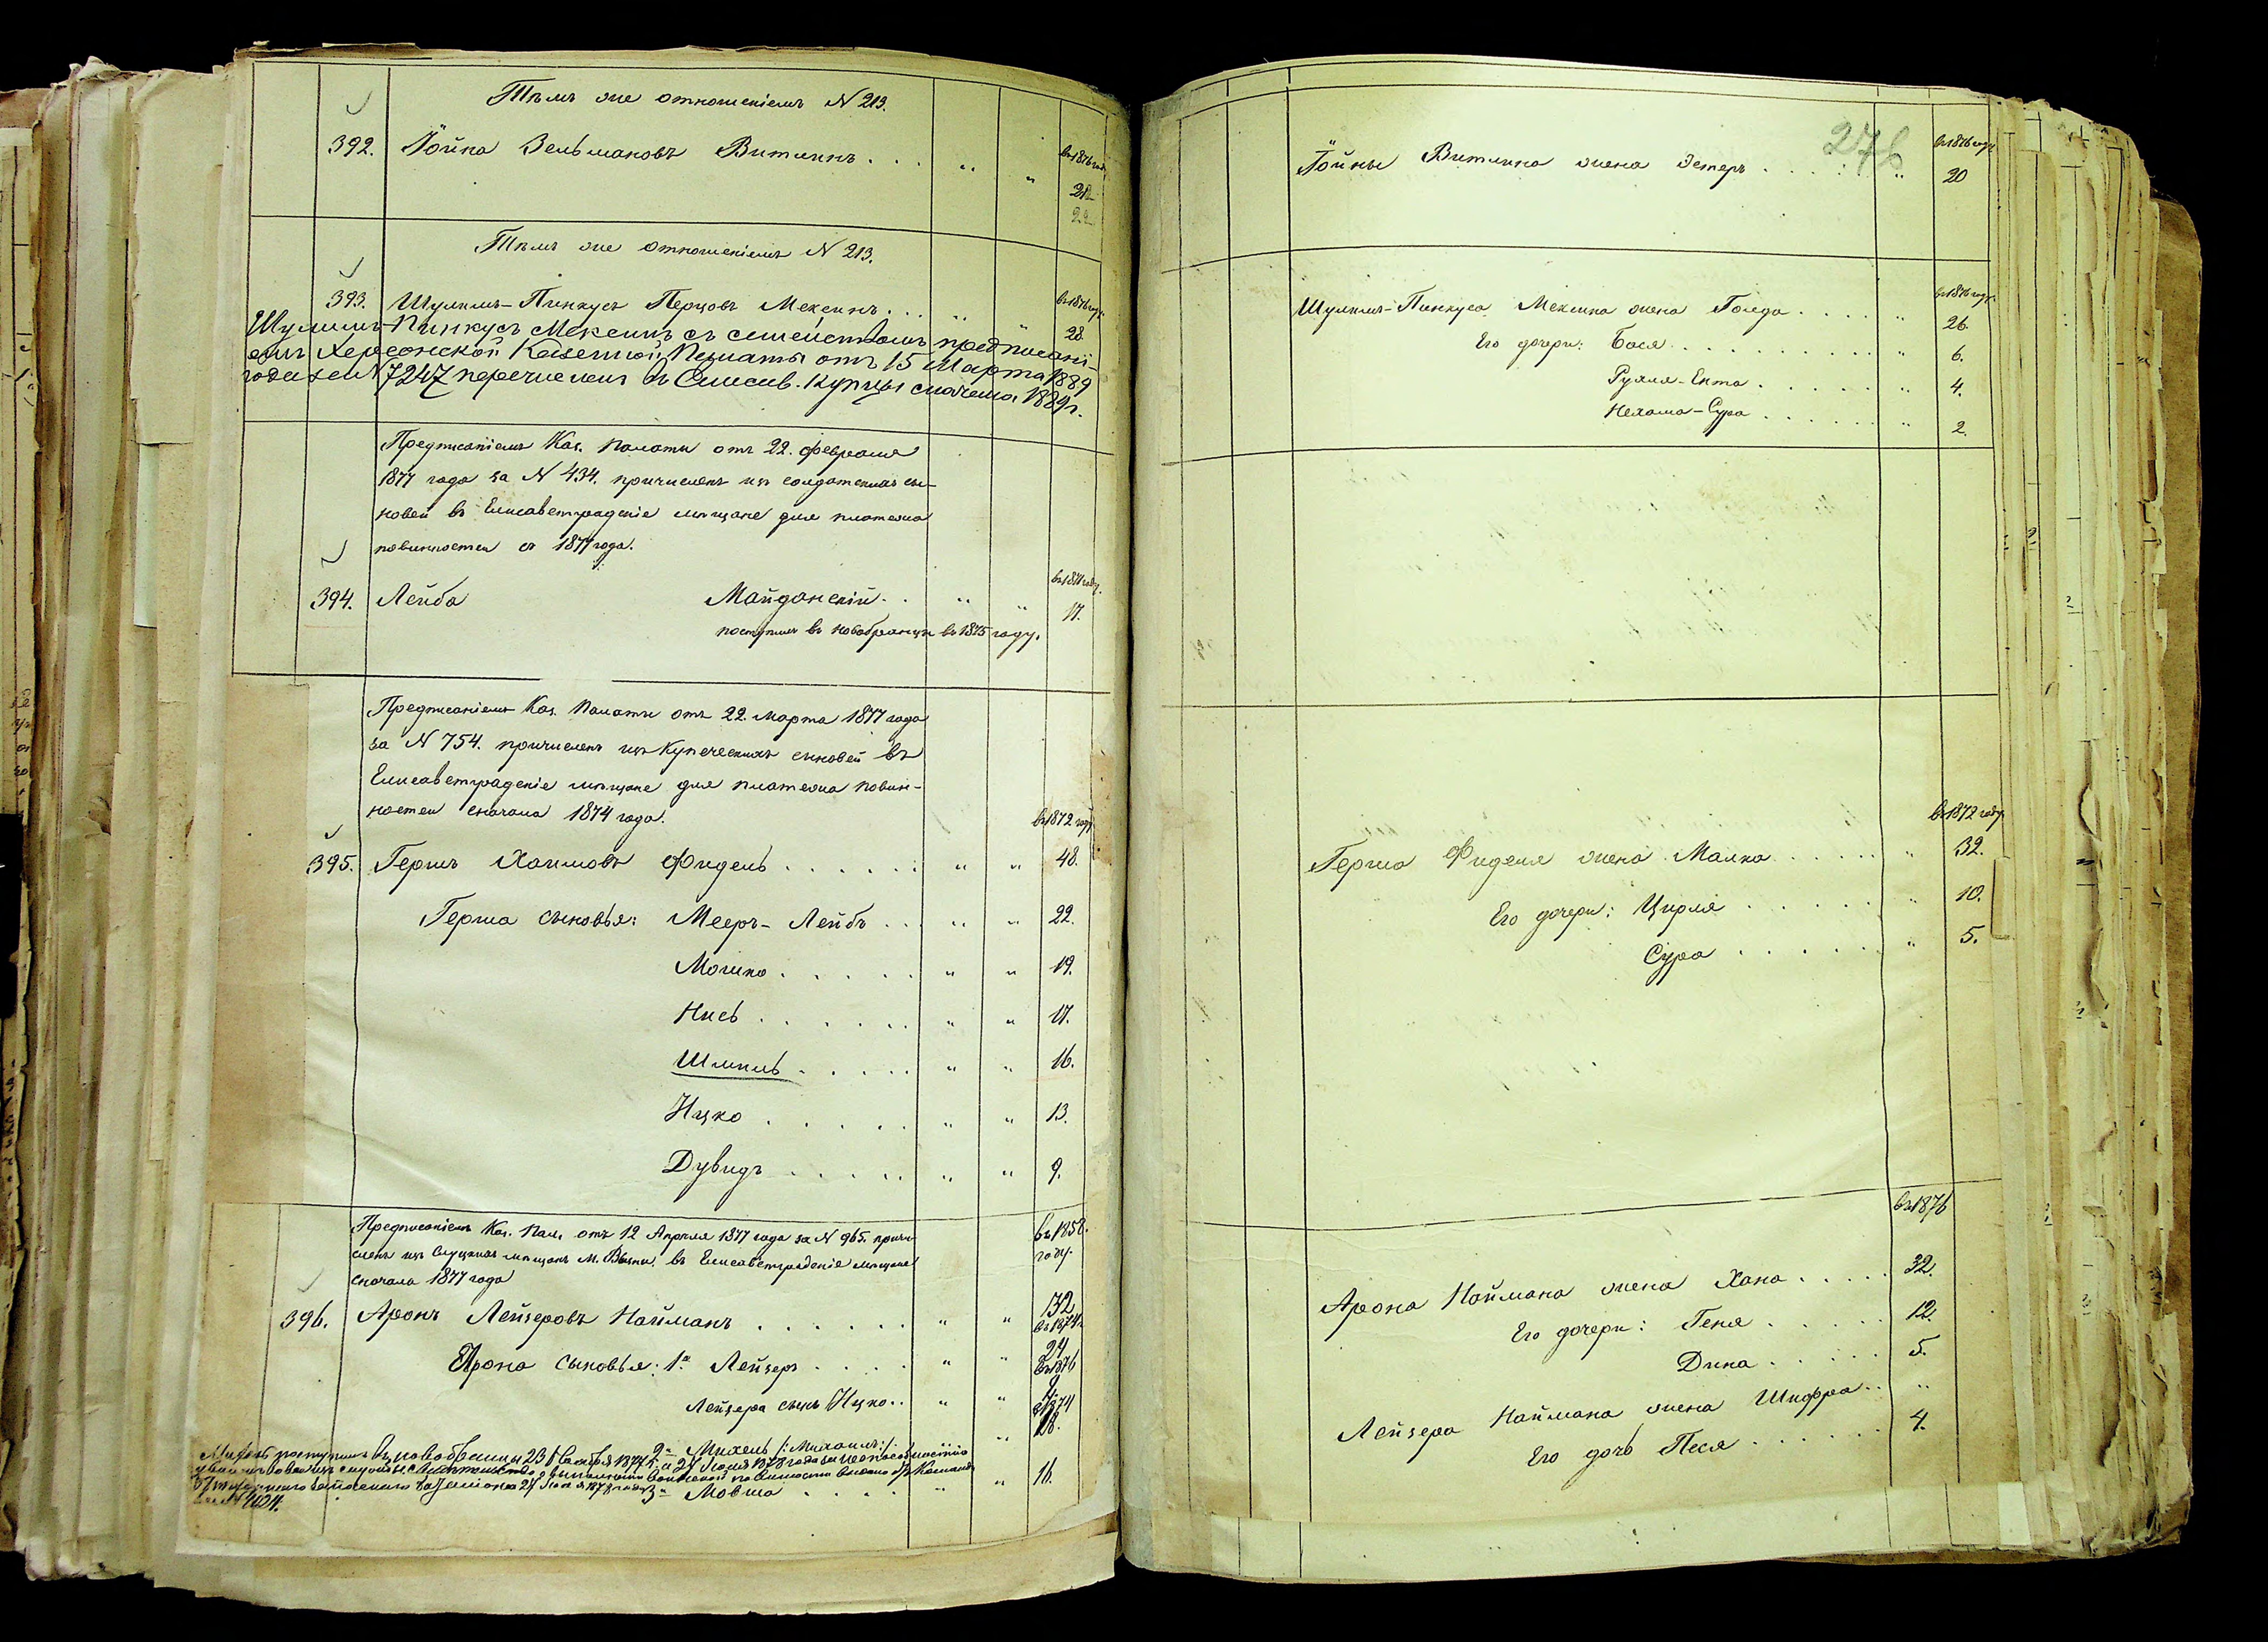 Тѣмъ же отношеніемъ N 213.
392. Іойна Зельмановъ Витлинъ . . . " " въ 1876 году
21
22
Тѣмъ же отношеніемъ N 213.
393. Шулимъ-Пинкусъ Перцовъ Мексинъ . . . " въ 1876 году
28.
Шулимъ-Пинкусъ Мексинъ съ семействомъ предписані-
емъ Херсонской Казенной Палаты отъ 15 Марта 1889
года за N 7247 перечисленъ въ Елисав. купцы сначала 1889 г.
Предписаніемъ Каз. Палаты отъ 22. февраля
1877 года за N 434. причисленъ изъ солдатскихъ сы-
новей въ Елисаветградскіе мѣщане для платежа
повинностей съ 1877 года.
въ 1874 году.
394. Лейба Майданскій . . " " 17.
поступилъ въ новобранцы въ 1875 году.
Предписаніемъ Каз. Палаты отъ 22. Марта 1877 года
за N 754. причисленъ изъ купеческихъ сыновей въ
Елисаветградскіе мѣщане для платежа повин-
ностей сначала 1874 года.
въ 1872 году
395. Гершъ Хаимовъ Фидель . . . . . . " " 48.
Герша сыновья: Мееръ-Лейбъ . . . " " 22.
Мошко . . . . . " " 19.
Нись . . . . . . " " 17.
Шмиль . . . . . " " 16.
Ицко . . . . . " " 13.
Дувидъ . . . . . " " 9.
Предписаніемъ Каз. Пал. отъ 12 Апрѣля 1877 года за N 965. причи-
сленъ изъ Слуцкихъ мѣщанъ м. въ Елисаветградскіе мѣщане
сначала 1877 года
въ 1858.
году.
396. Аронъ Лейзеровъ Найманъ . . . . . . " " 32
въ 1874 г.
24
Арона сыновья: 1й Лейзеръ . . . . " "
въ 1876
Лейзера сынъ Ицко . . " "
1874
18.
2й Михель /: Михаилъ :/ "
Михель поступилъ въ новобранцы 1877 г. и 24 Іюля 1878 года за неспособностію
уволенъ вовсе изъ службы. о выполненіи воинской повинности
24 Іюля 1878 года
3й Мовша . . . . " " 16.
276
въ 1876 году
Іойны Витлина жена Эстеръ . . . . " 20
въ 1876 году
Шулима-Пинкуса Мексина жена Голда . . . . " 26.
Его дочери: Бася . . . . . . . . " 6.
Рухля-Ента . . . . . " 4.
Нехама-Сура . . . . . " 2.
въ 1872 году
Герша Фиделя жена Малка . . . . . " 32.
Его дочери: Цирля . . . . . . " 10.
Сура . . . . . " 5.
въ 1876
Арона Наймана жена Хана . . . . . 32.
Его дочери: Геня . . . . . 12.
Дина . . . . . 5.
Лейзера Наймана жена Шифра . . "
Его дочь Песя . . . . . . 4.